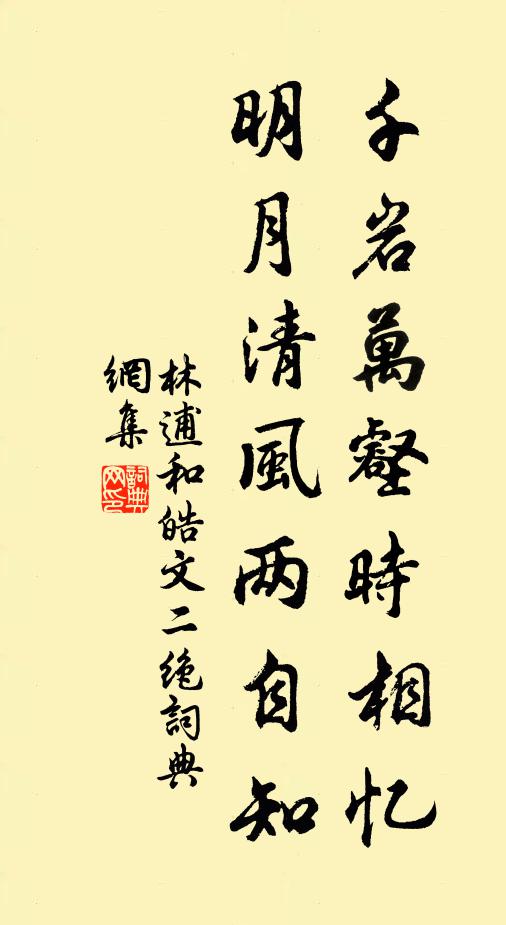 千岩萬壑時相忆
明月清風两自知
林逋和皓文二绝詞典
網集
詞典
网印